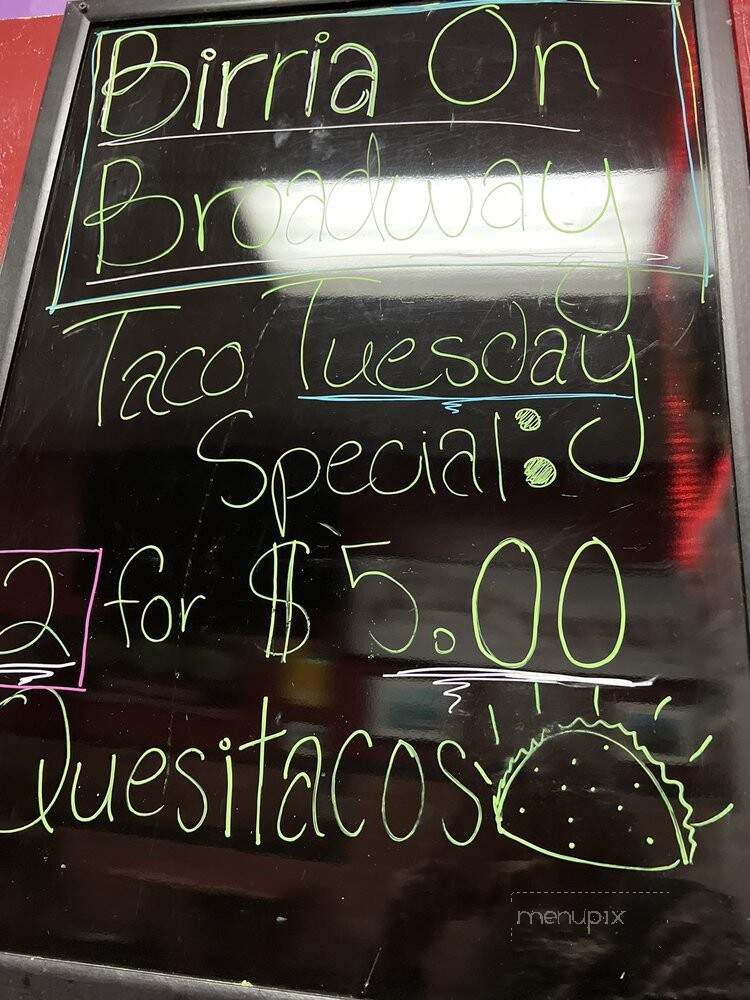 Birria On
Broadway
Taco Tuesday
Special:
2 for $5.00
Quesitacos
menupix